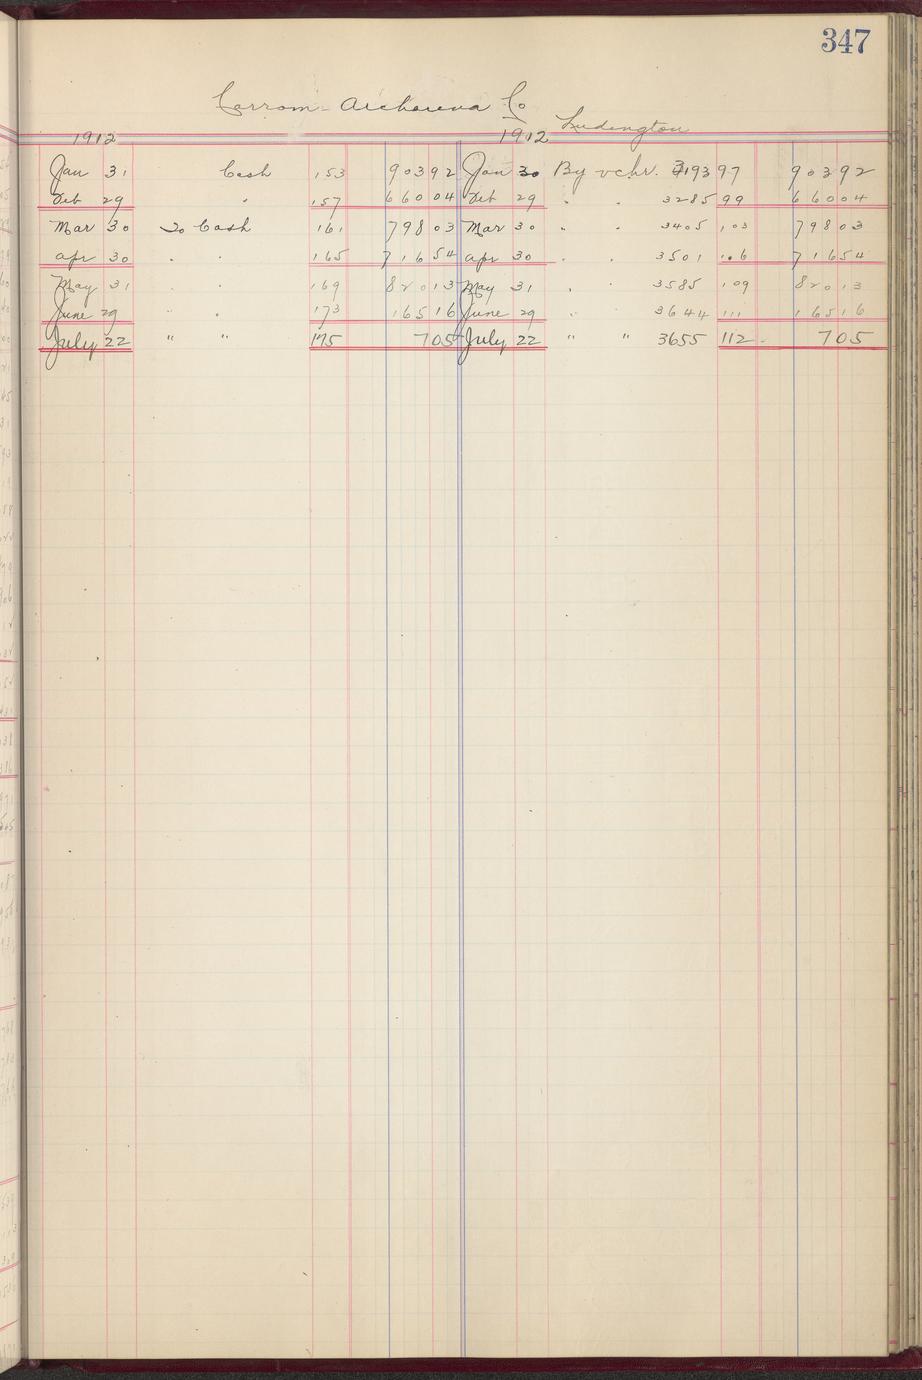 347
Carrom-Archarena Co
Ludington
1912 1912
Jan 31 Cash 153 903 92 Jan 30 By vchr. 3193 97 903 92
Feb 29 " 157 660 04 Feb 29 " " 3285 99 660 04
Mar 30 To Cash 161 798 03 Mar 30 " " 3405 103 798 03
Apr 30 " " 165 716 54 Apr 30 " " 3501 106 716 54
May 31 " " 169 820 13 May 31 " " 3585 109 820 13
June 29 " " 173 165 16 June 29 " " 3644 111 165 16
July 22 " " 175 7 05 July 22 " " 3655 112 7 05